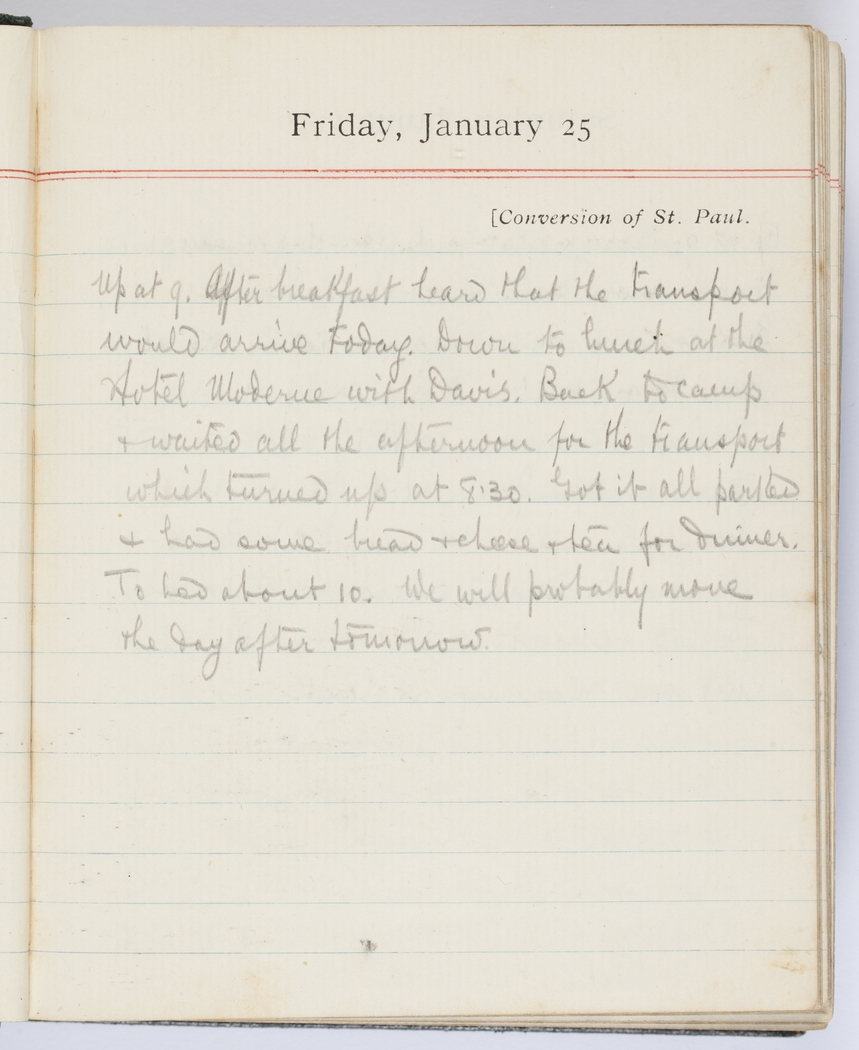 Friday, January 25
[Conversion of St. Paul.
Up at 9. After breakfast heard that the transport
would arrive today. Down to lunch at the
Hotel Moderne with Davis. Back to camp
+ waited all the afternoon for the transport
which turned up at 8.30. Got it all parked
+ had some bread + cheese + tea for dinner.
To bed about 10. We will probably move
the day after tomorrow.